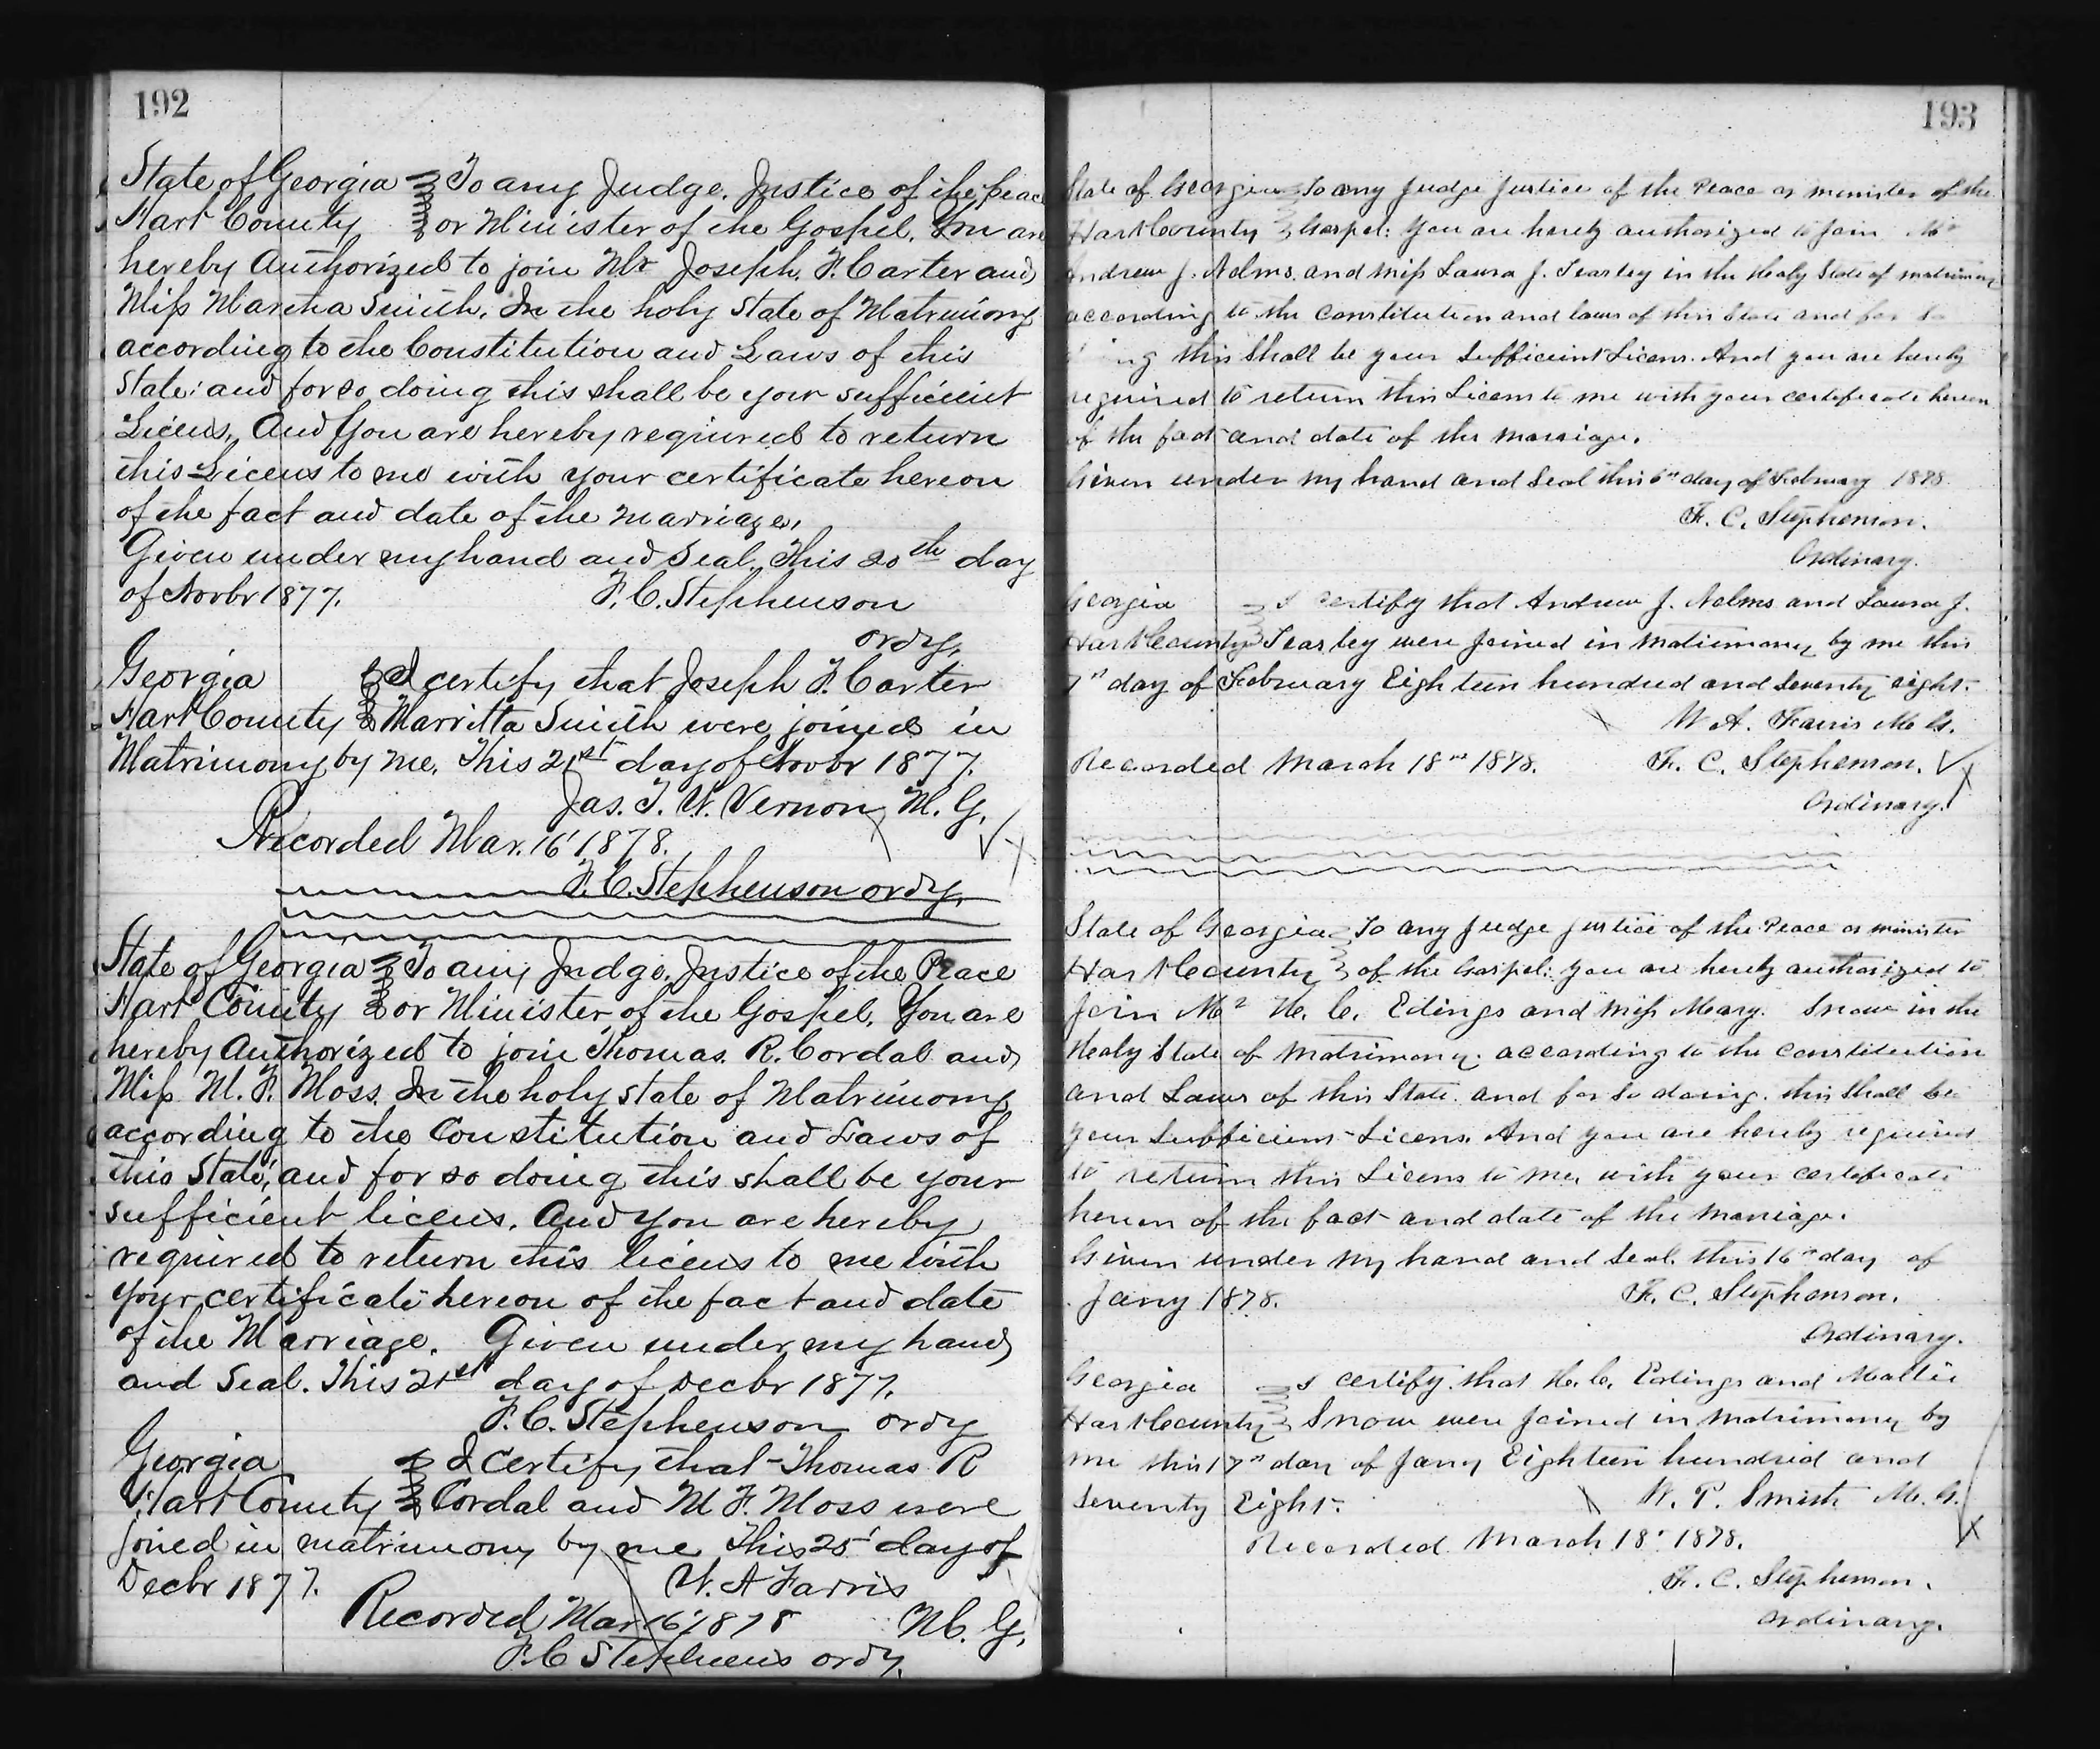 192
State of Georgia To any Judge, Justice of the Peac
Hart County or Minister of the Gospel, You are
hereby Authorized to join Mr Joseph, F. Carter and
Miss Martha Smith, In the holy State of Matrimony
according to the Constitution and Laws of this
State: and for so doing this shall be your sufficient
Licens, And you are hereby required to return
this Licens to me with your certificate hereon
of the fact and date of the marriage,
Given under my hand and Seal, This 20th day
of Novbr 1877. F. C. Stephenson
ordy,
Georgia I certify that Joseph F. Carter
Hart County Marritta Smith were joined in
Matrimony by me, This 21st day of Novbr 1877.
Jas. T. W. Vernon, M. G.
Recorded Mar. 16' 1878.
F. C. Stephenson ordy,
State of Georgia To any Judge, Justice of the Peace
Hart County or Minister of the Gospel, You are
hereby Authorized to join Thomas R. Cordal and
Miss M. F. Moss In the holy state of Matrimony
according to the Constitution and Laws of
this State, and for so doing this shall be your
sufficient licens. And you are hereby
required to return this licens to me with
your certificate hereon of the fact and date
of the Marriage. Given under my hand
and Seal. This 21st day of Decbr 1877.
F. C. Stephenson ordy
Georgia I certify that Thomas R
Hart County Cordal and M F. Moss were
joined in matrimony by me This 25' day of
Decbr 1877. W. A Farris
Recorded Mar 16' 1878 M. G.
F. C Stephens ordy.
193
State of Georgia To any Judge Justice of the Peace or minister of the
Hart County Gospel: You are hereby authorized to Join Mr
Andrew J. Nelms and Miss Laura J. Teasley in the Holy State of matrimony
according to the constitution and laws of this State and for so
ing this Shall be your Sufficient Licens. And you are hereby
required to return this Licens to me with your certificate hereon
of the fact and date of the marriage.
Given under my hand and Seal this 6th day of February 1878
F. C. Stephenson.
Ordinary.
Georgia I certify that Andrew J. Nelms and Laura J.
Hart County Teasley were Joined in Matrimony by me this
7th day of February Eighteen hundred and Seventy eight.
W. A. Farris M. G.
Recorded March 18th 1878. F. C. Stephenson.
Ordinary.
State of Georgia To any Judge Justice of the Peace or minister
Hart County of the Gospel: you are hereby authorized to
Join Mr H. C. Edings and Miss Mary Snow in the
Holy State of Matrimony. according to the constitution
and Laws of this State. and for so doing. this Shall be
your Sufficient Licens. And you are hereby required
to return this Licens to me, with your certificate
hereon of the fact and date of the Marriage.
Given under my hand and Seal. this 16th day of
Jany 1878. F. C. Stephenson.
Ordinary.
Georgia I certify that H. C. Edings and Mattie
Hart County Snow were Joined in Matrimony by
me this 17th day of Jany Eighteen hundred and
Seventy Eight. W. P. Smith M. G.
Recorded March 18' 1878.
F. C. Stephenson.
Ordinary.